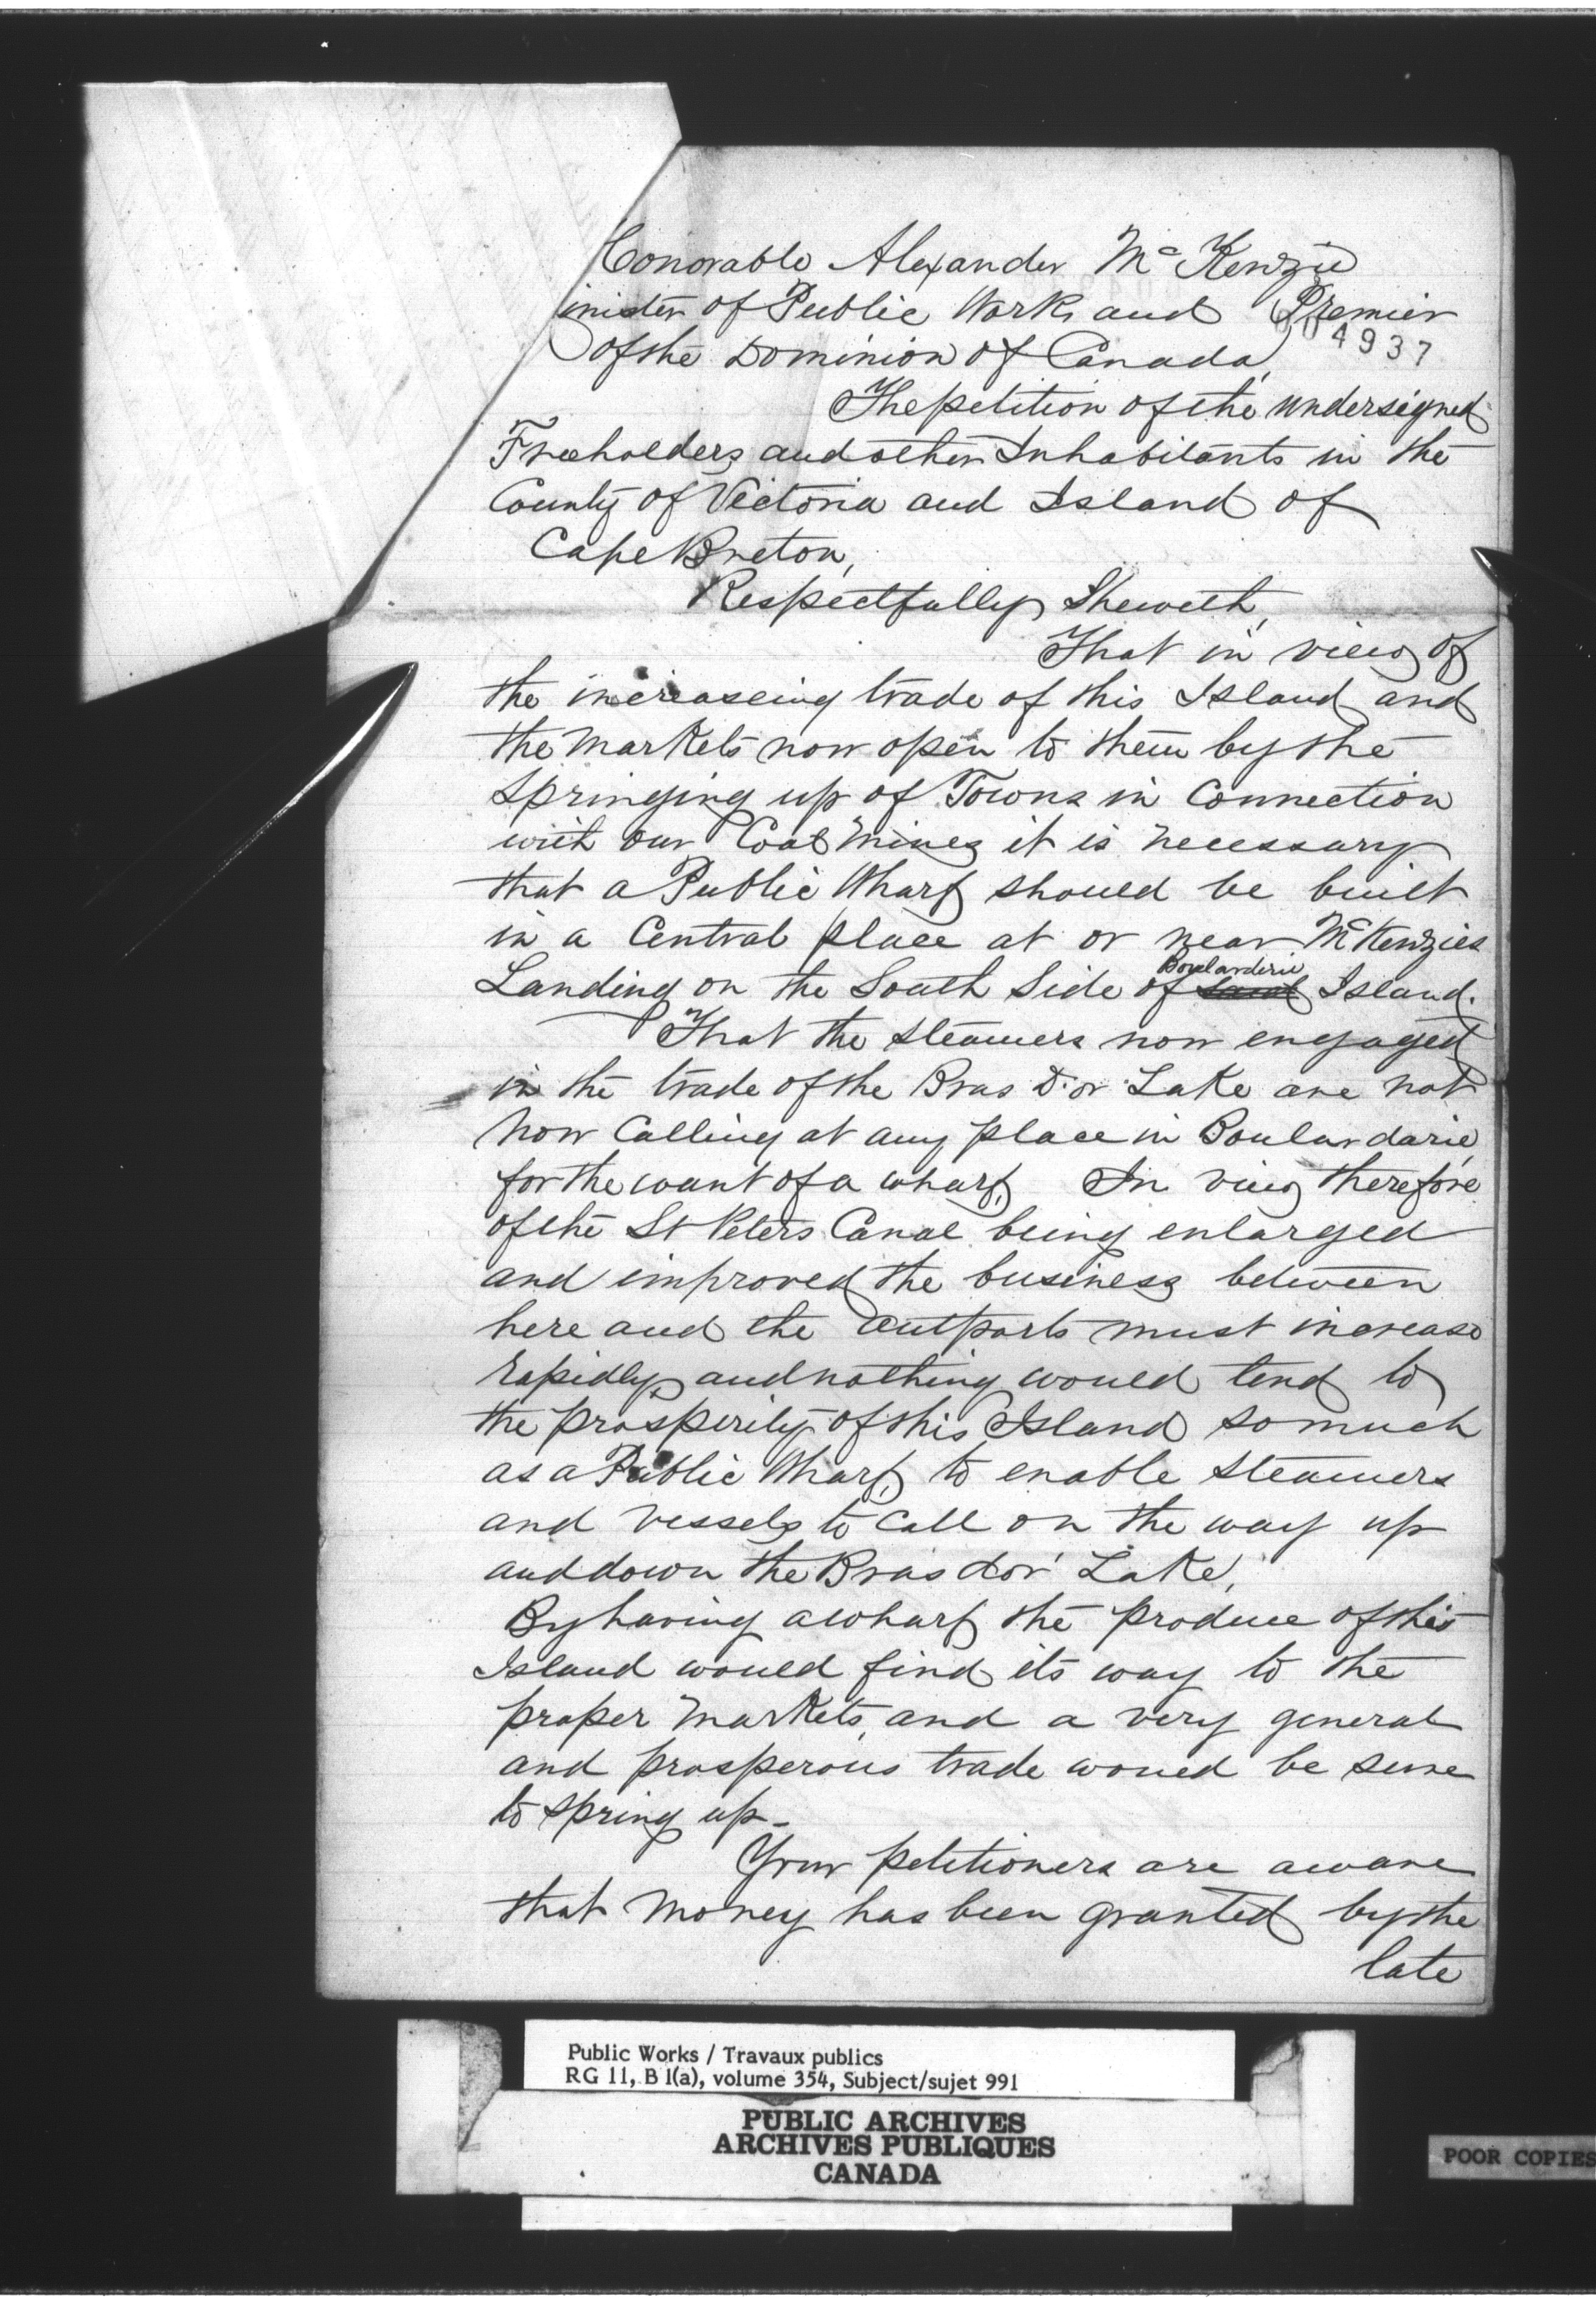 Honorable Alexander McKenzie
inister of Public Works and Premier
of the Dominion of Canada,
4937
The petition of the undersigned
Freeholders and other Inhabitants in the
County of Victoria and Island of
Cape Breton,
Respectfully Sheweth,
That in view of
the increaseing trade of this Island and
the markets now open to them by the
Springing up of Towns in Connection
with our Coal Mines it is necessary
that a Public Wharf should be built
in a Central place at or near McKenzies
Boularderie
Landing on the South Side of said Island.
That the steamers now engaged
in the trade of the Bras D'or Lake are not
now Calling at any place in Boulardarie,
for the want of a wharf, In view therefore
of the St Peters Canal being enlarged
and improved the business between
here and the outports must increase
rapidly, and nothing would tend to
the prosperity of this Island so much
as a Public Wharf, to enable steamers
and vessels to Call on the way up
and down the Bras dor Lake,
By having a wharf the produce of this
Island would find its way to the
proper markets, and a very general
and prosperous trade would be sure
to spring up-
Your petitioners are aware
that money has been granted by the
late
Public Works / Travaux publics
RG 11, B 1(a), volume 354, Subject/sujet 991
PUBLIC ARCHIVES
ARCHIVES PUBLIQUES
CANADA
POOR COPIES